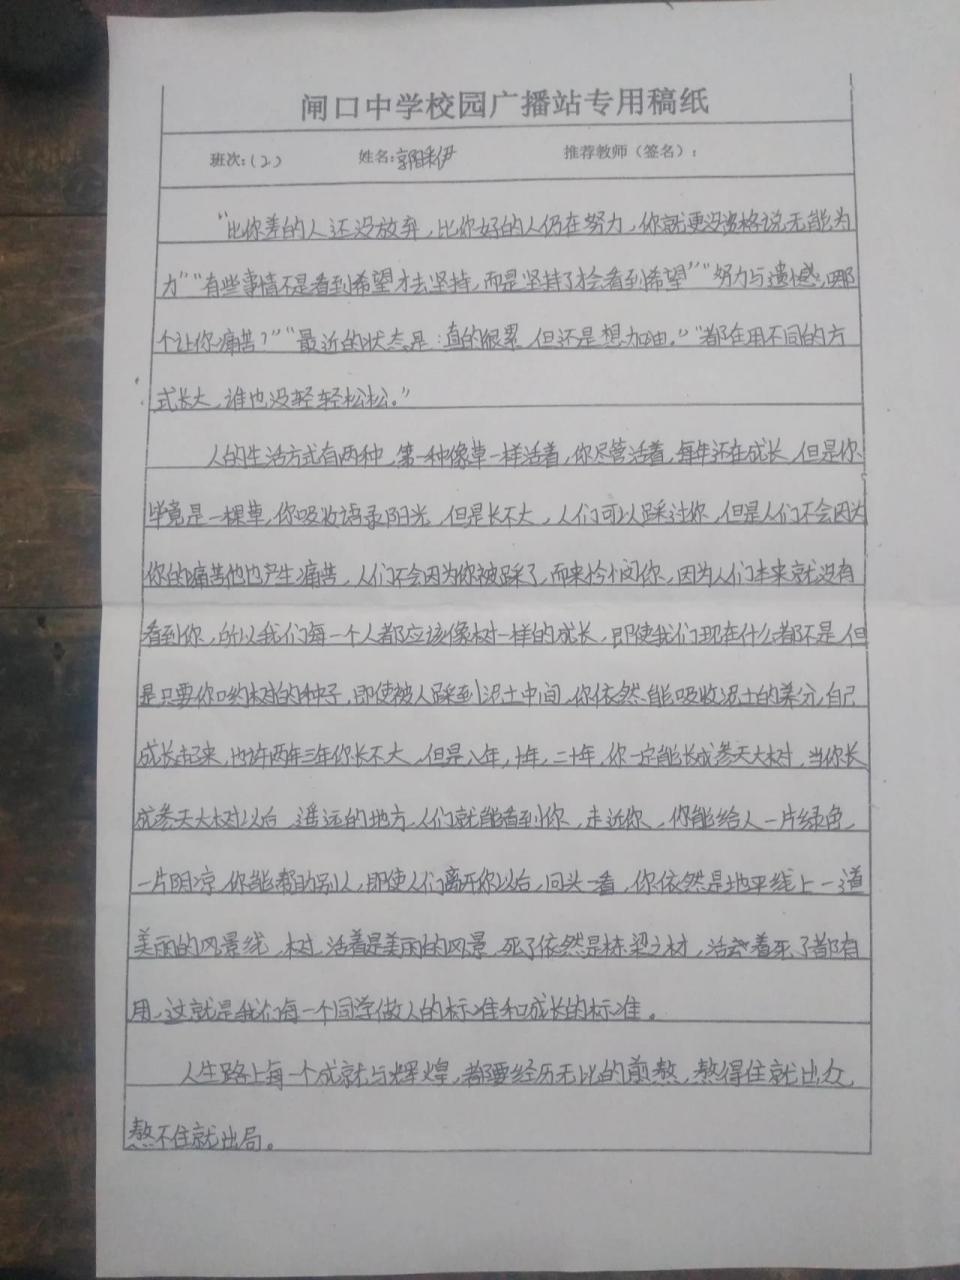 闸口中学校园广播站专用稿纸
班次:(2) 姓名: 推荐教师（签名）:
“比你差的人还没放弃，比你好的人仍在努力，你就更没资格说无能为
力”“有些事情不是看到希望才去坚持，而是坚持了才会看到希望”“努力与遗憾，哪
个让你痛苦？”“最近的状态是：真的很累，但还是想加油。”“都在用不同的方
式长大，谁也没轻轻松松。”
人的生活方式有两种，第一种像草一样活着，你尽管活着，每年还在成长，但是你
毕竟是一棵草，你吸收语录阳光，但是长不大，人们可以踩过你，但是人们不会因为
你的痛苦他也产生痛苦，人们不会因为你被踩了，而来怜悯你，因为人们本来就没有
看到你，所以我们每一个人都应该像树一样的成长，即使我们现在什么都不是，但
是只要你 树的种子，即使被人踩到泥土中间，你依然能吸收泥土的养分，自己
成长起来，也许两年三年你长不大，但是八年，十年，二十年，你一定能长成参天大树，当你长
成参天大树以后，遥远的地方，人们就能看到你，走近你，你能给人一片绿色，
一片阴凉，你能帮助别人，即使人们离开你以后，回头一看，你依然是地平线上一道
美丽的风景线，树，活着是美丽的风景，死了依然是栋梁之材，活着死了都有
用，这就是我们每一个同学做人的标准和成长的标准。
人生路上每一个成就与辉煌，都要经历无比的煎熬，熬得住就出众，
熬不住就出局。